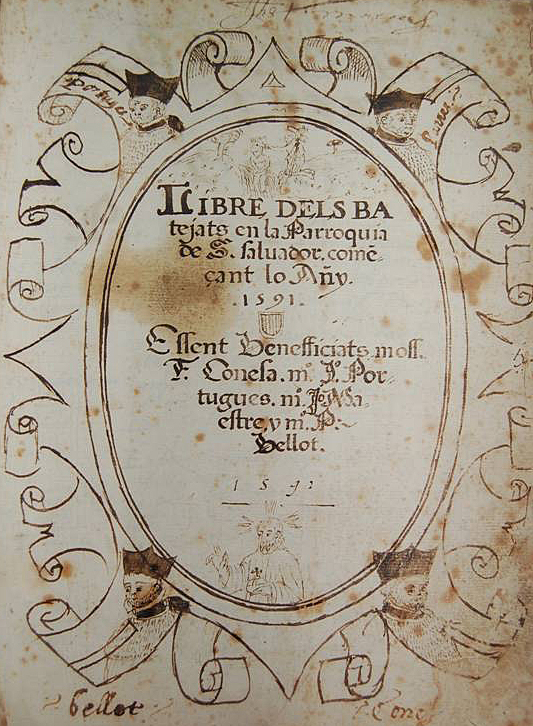 Portugés
LIBRE DELS BA
tejats en la Parroquia
de S. saluador. comē-
çant lo Añy.
.1591.
Essent Benefficiats moss.
F. Conesa. m. J. Por-
tugues. m. J. Ma-
estre, y m. P.
Bellot.
1591
bellot
Cone